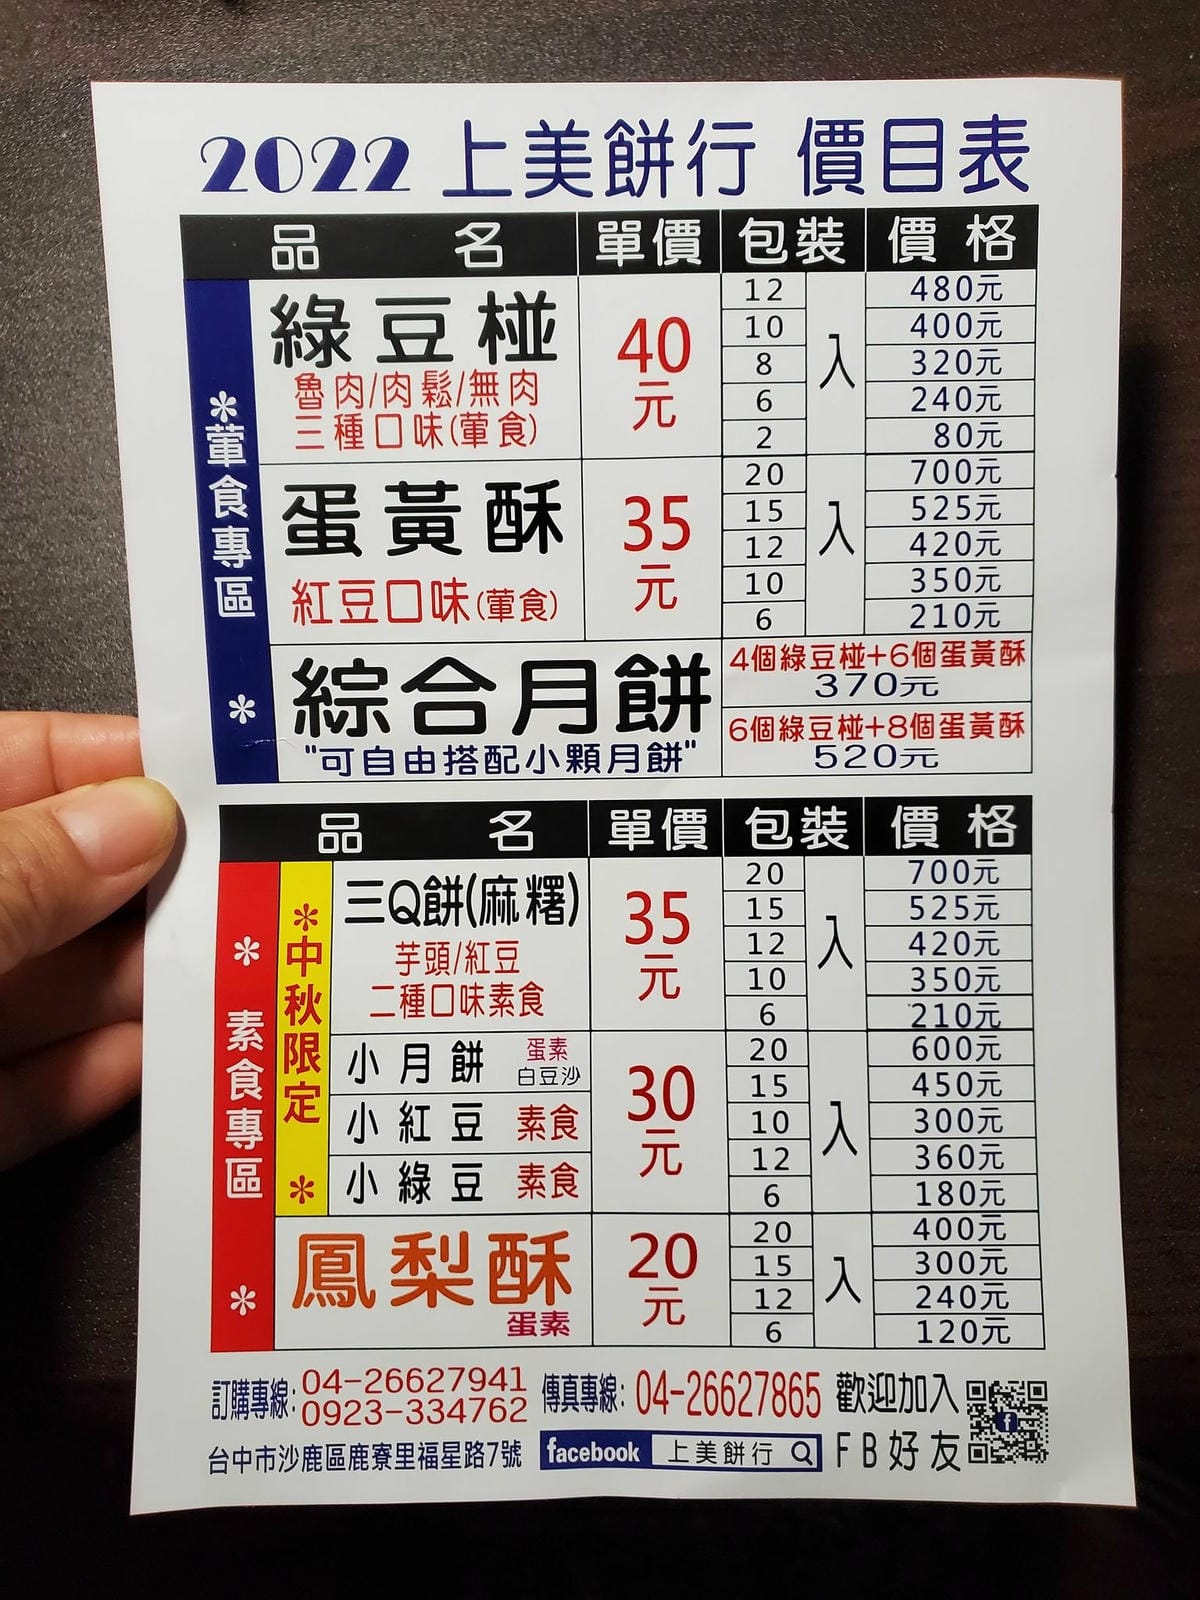 2022 上美餅行 價目表
品 名 單價 包裝 價格
*葷食專區*
綠豆椪
魯肉/肉鬆/無肉
三種口味(葷食)
40元
12 入 480元
10 400元
8 320元
6 240元
2 80元
蛋黃酥
紅豆口味(葷食)
35元
20 入 700元
15 525元
12 420元
10 350元
6 210元
綜合月餅
"可自由搭配小顆月餅"
4個綠豆椪+6個蛋黃酥
370元
6個綠豆椪+8個蛋黃酥
520元
品 名 單價 包裝 價格
*素食專區*
*中秋限定*
三Q餅(麻糬)
芋頭/紅豆
二種口味素食
35元
20 入 700元
15 525元
12 420元
10 350元
6 210元
小月餅 蛋素
白豆沙
小紅豆 素食
小綠豆 素食
30元
20 入 600元
15 450元
10 300元
12 360元
6 180元
鳳梨酥
蛋素
20元
20 入 400元
15 300元
12 240元
6 120元
訂購專線:04-26627941
0923-334762
傳真專線:04-26627865
歡迎加入
FB好友
台中市沙鹿區鹿寮里福星路7號
facebook 上美餅行
f